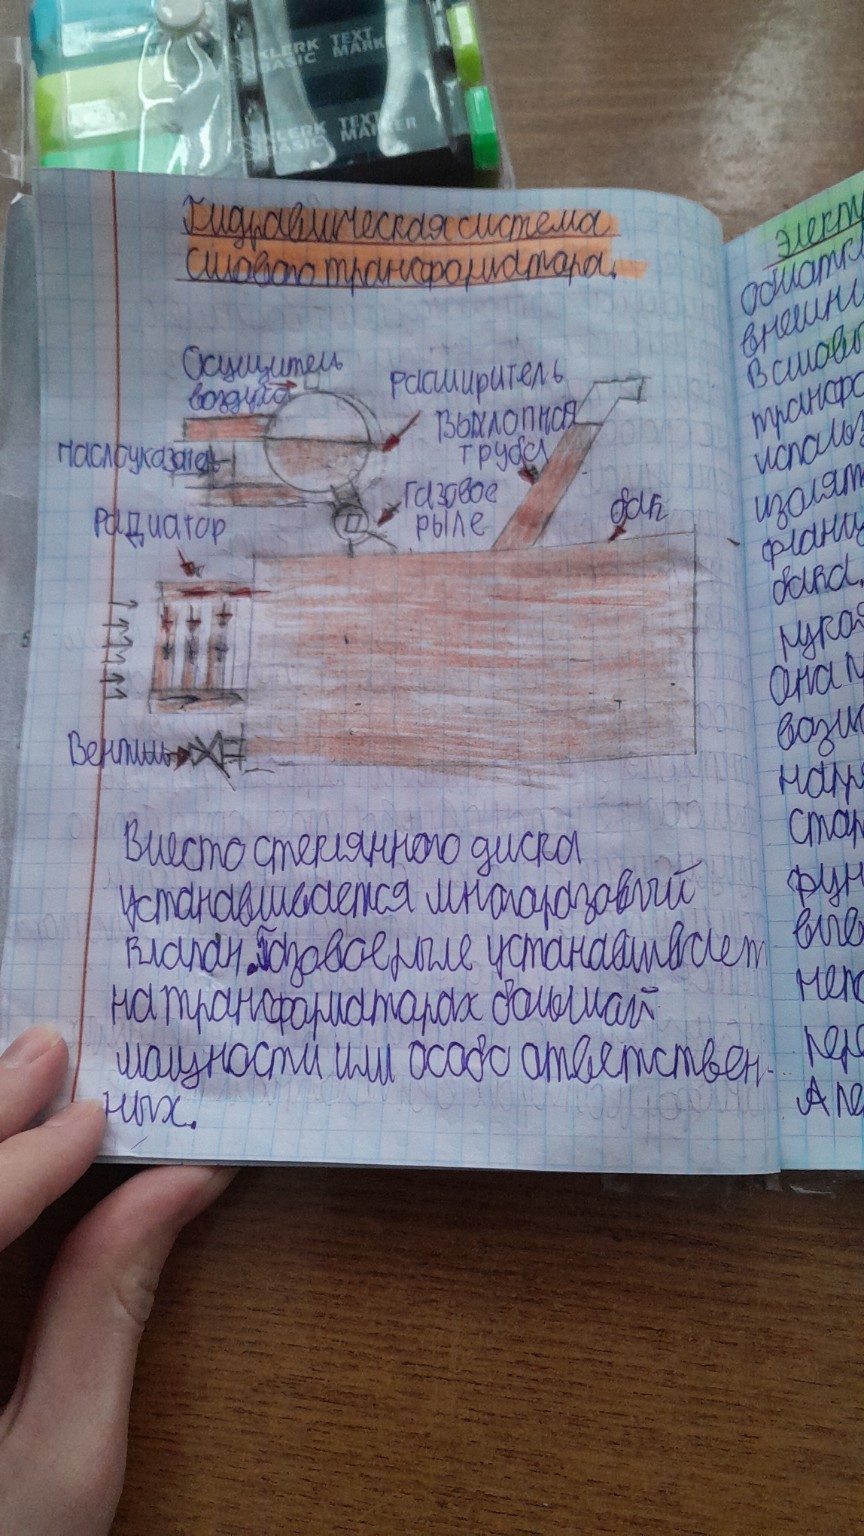 KLERK TEXT
BASIC MARKER
KLERK TEXT
BASIC MARKER
Гидравлическая система
силового трансформатора.
Осушитель
воздуха
расширитель
Выхлопная
труба
маслоуказатель
газовое
рыле
бак
радиатор
Вентиль
Вместо стеклянного диска
устанавливается многоразовый
клапан. Газовое рыле устанавливает
на трансформаторах большой
мощности или особо ответствен-
ных.
Элект
обмотк
внешни
В силовы
трансфо
использ
изолят
флани
бака.
Она
вози
напр
стар
фун